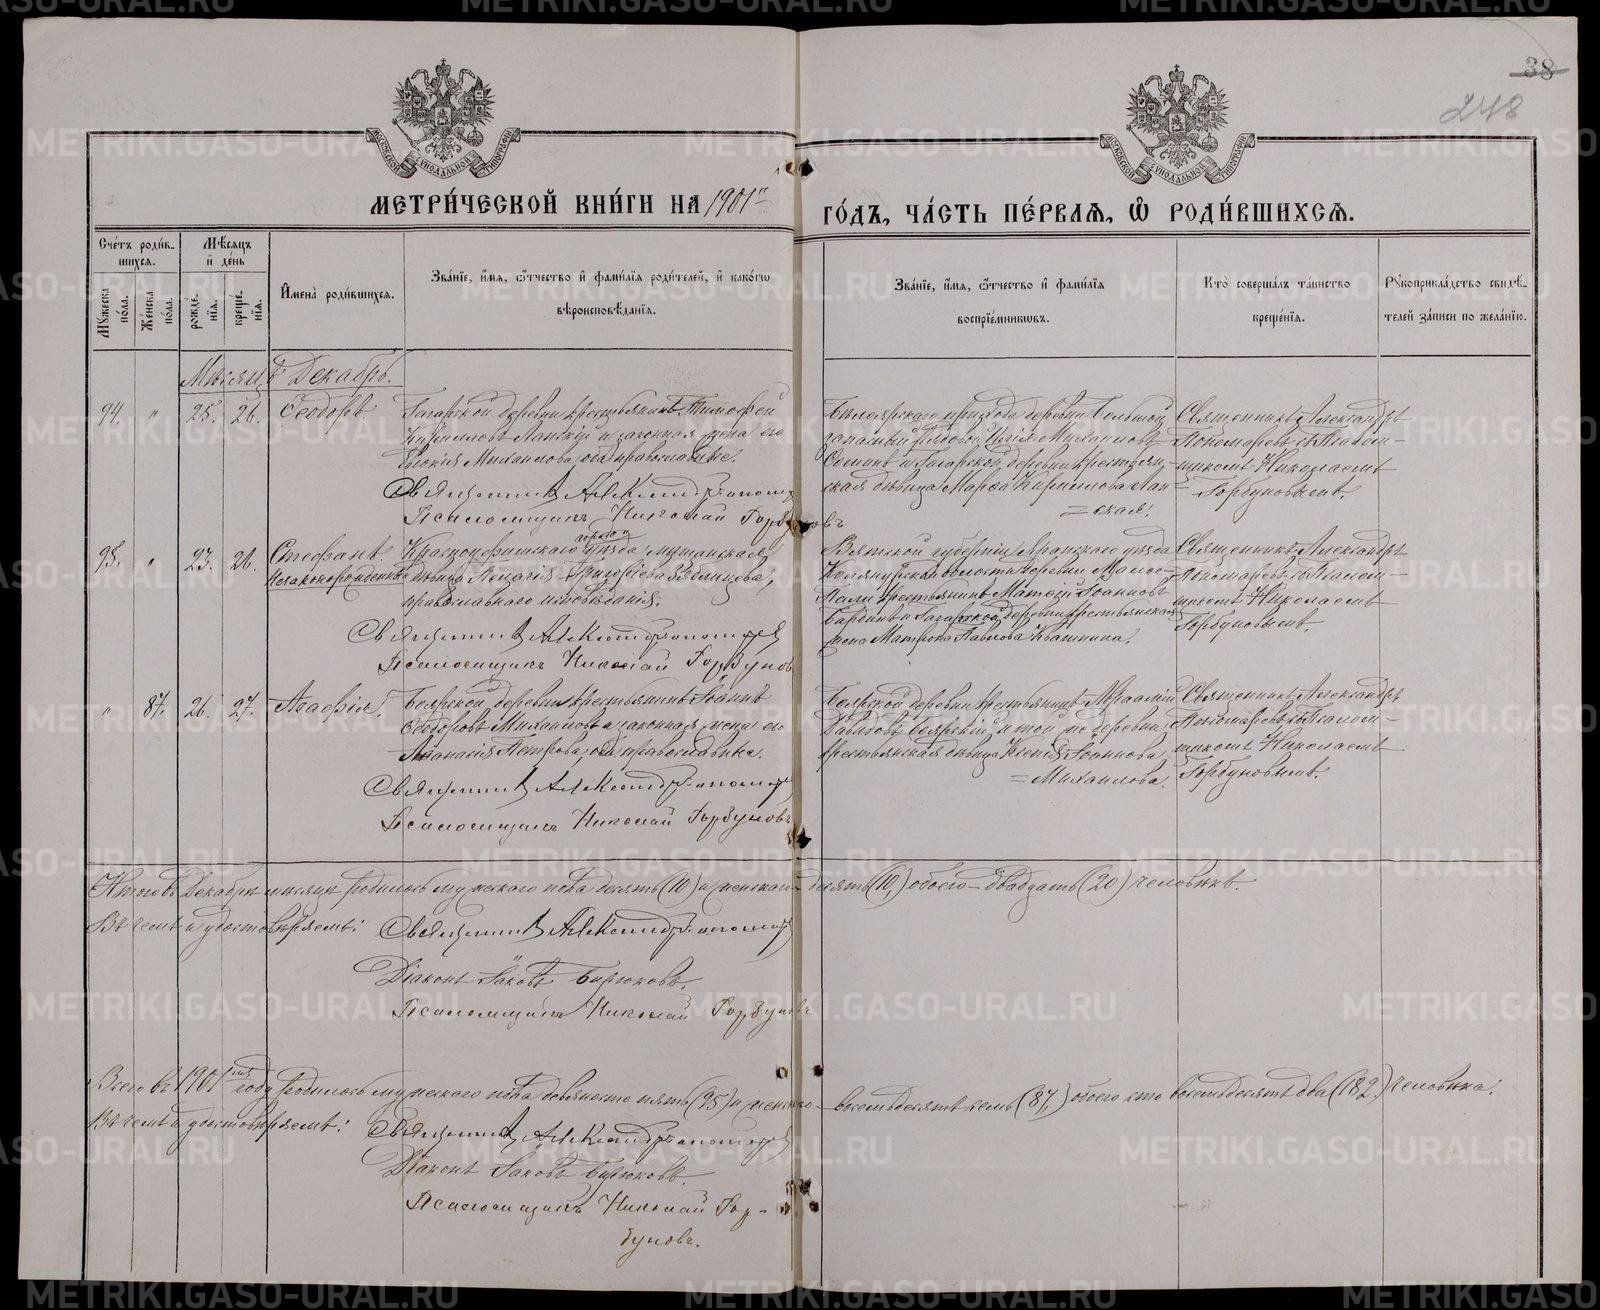 38
248
МОСКОВСКОЙ СѴНОДАЛЬНОЙ ТИПОГРАФІИ
МОСКОВСКОЙ СѴНОДАЛЬНОЙ ТИПОГРАФІИ
МЕТРИ́ЧЕСКОЙ КНИ́ГИ НА 1901й
ГО́ДЪ, ЧА́СТЬ ПЕ́РВАЯ, Ѡ҆ РОДИ́ВШИХСЯ.
Сче́тъ роди́в-
шихся.
Мѣ́сяцъ
и҆ день
Мꙋжеска по́ла.
Же́нска по́ла.
рожде́нїя.
креще́нїя.
И҆мена̀ роди́вшихся.
Зва́нїе, и҆́мя, ѻ҆́тчество и҆ фами́лїя роди́телей, и҆ како́гѡ
вѣроисповѣ́данїя.
Зва́нїе, и҆́мя, ѻ҆́тчество и҆ фами́лїя
воспрїе́мникѡвъ.
Кто̀ соверша́лъ та́инство
креще́нїя.
Рꙋкоприкла́дство свидѣ́-
телей за́писи по жела́нїю.
Мѣсяцъ Декабрь.
94. " 25. 26. Ѳеодоръ
Гагарской деревни крестьянинъ Тимофей
Кирилловъ Ланскій и законная жена его
Евдокія Михаилова, оба православные.
Священникъ Александръ Пономаревъ
Псаломщикъ Николай Горбуновъ
Белоярскаго прихода деревни
запасный рядовой Илія Михаиловъ
и Гагарской деревни крестьян-
ская дѣвица Марѳа Кириллова Лан-
=ская.
Священникъ Александръ
Пономаревъ съ Псалом-
щикомъ Николаемъ
Горбуновымъ.
95. " 23. 26. Стефанъ
незаконорожденный
Красноуфимскаго уѣзда мѣщанская
города
дѣвица Пелагія Григоріева Зяблицева,
православнаго исповѣданія.
Священникъ Александръ Пономаревъ
Псаломщикъ Николай Горбуновъ
Вятской губерніи Яранскаго уѣзда
волости деревни Малое-
крестьянинъ Матѳій Іоанновъ
и Гагарской деревни крестьянская
жена Матрона Павлова Квашнина.
Священникъ Александръ
Пономаревъ съ Псалом-
щикомъ Николаемъ
Горбуновымъ.
" 87. 26. 27. Агафія.
Боярской деревни крестьянинъ Іоаннъ
Ѳеодоровъ Михаиловъ и законная жена его
Аѳанасія Петрова, оба православные.
Священникъ Александръ Пономаревъ
Псаломщикъ Николай Горбуновъ
Боярской деревни крестьянинъ
Давидовъ Боярскій и той же деревни
крестьянская дѣвица Ксенія Іоаннова
=Михаилова.
Священникъ Александръ
Пономаревъ съ Псалом-
щикомъ Николаемъ
Горбуновымъ.
Итого въ Декабрѣ мѣсяцѣ родилось мужескаго пола десять (10) и женскаго - десять (10,) обоего - двадцать (20) человѣкъ.
Въ чемъ и удостовѣряемъ: Священникъ Александръ Пономаревъ
Діаконъ Іаковъ Бирюковъ.
Псаломщикъ Николай Горбуновъ
Всего въ 1901мъ году родилось мужескаго пола девяносто пять (95) и женскаго - восемьдесятъ семь (87,) обоего сто восемьдесятъ два (182,) человѣка.
Въ чемъ и удостовѣряемъ: Священникъ Александръ Пономаревъ
Діаконъ Іаковъ Бирюковъ.
Псаломщикъ Николай Гор-
буновъ.
METRIKI.GASO-URAL.RU